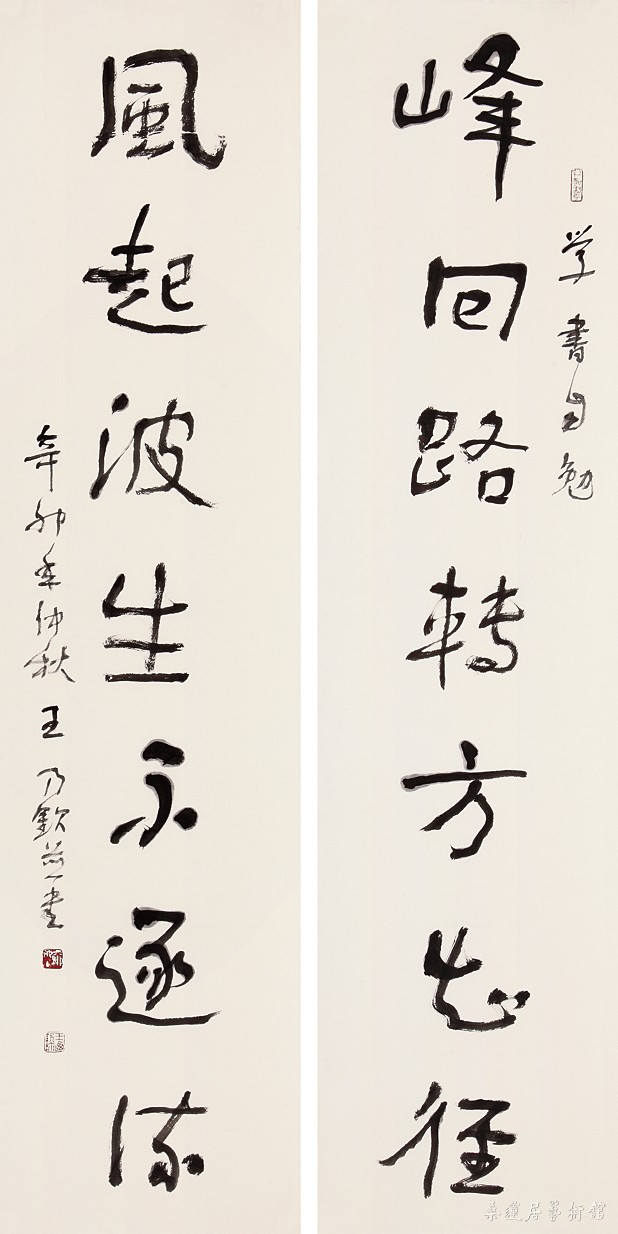 学書自勉
峰回路轉方知徑
風起波生不逐流
辛卯年仲秋王乃欽並書
桑蓮居藝術館